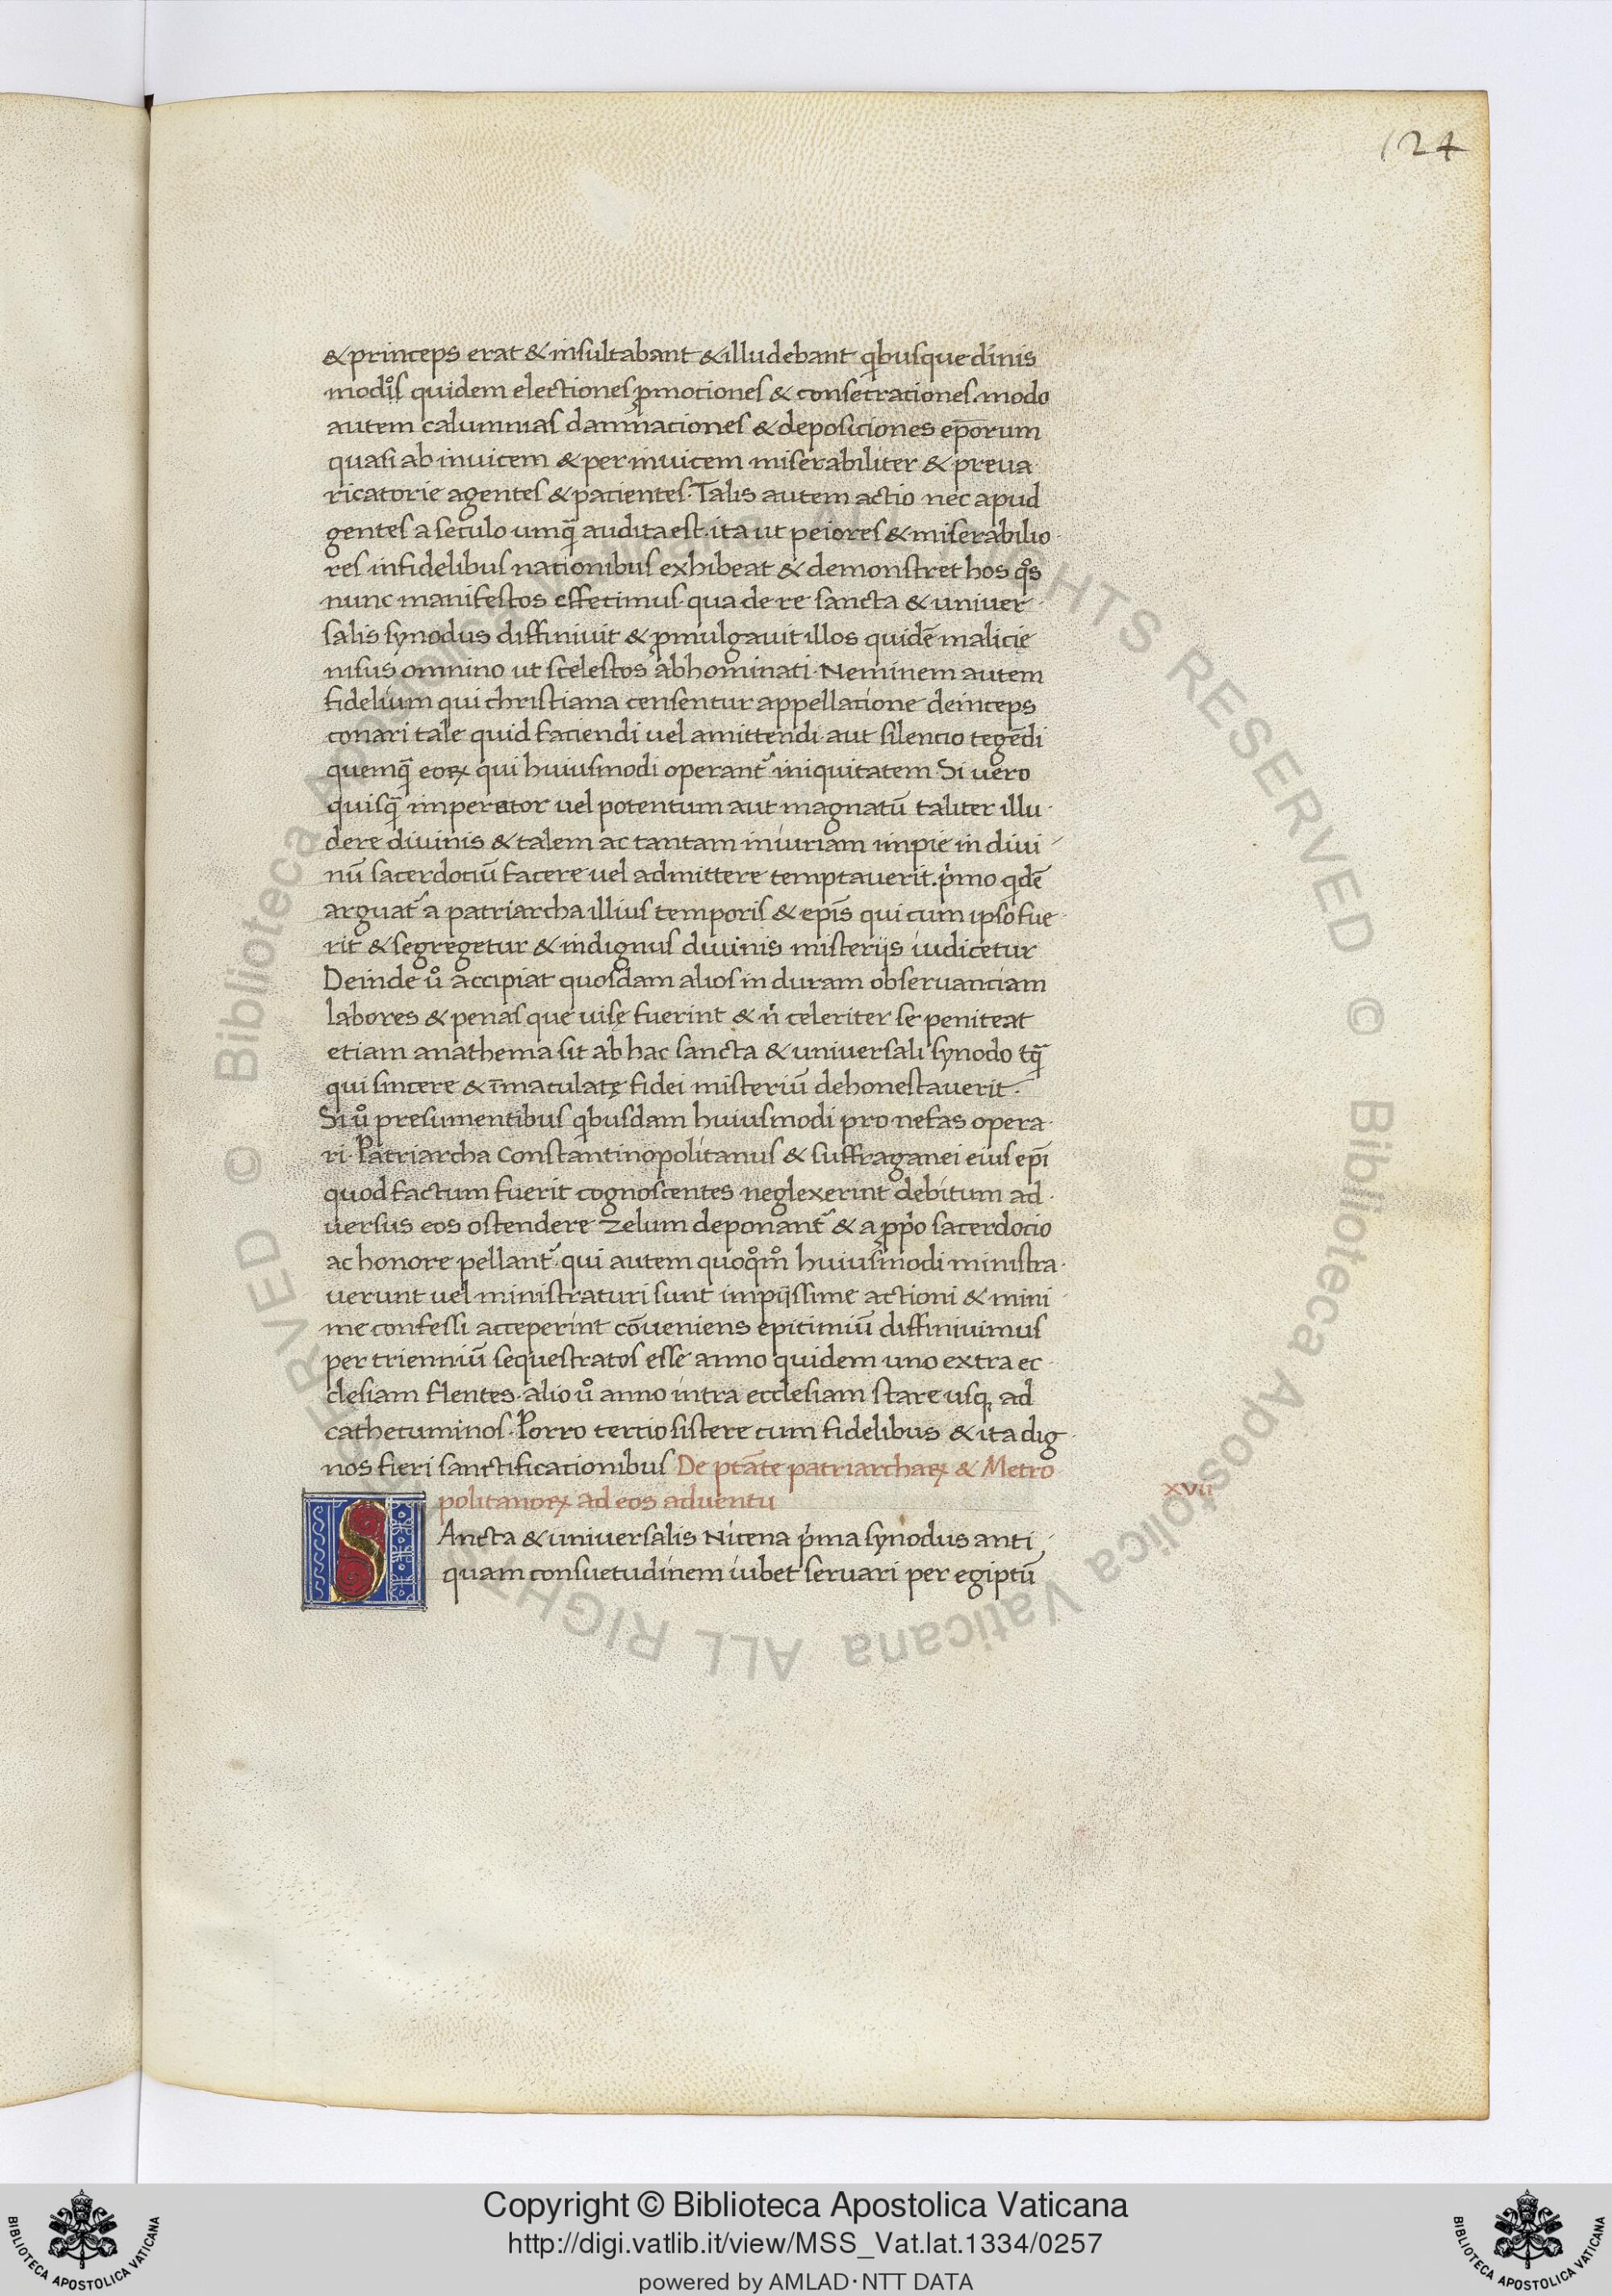 124
& princeps erat & insultabant & illudebant qibusque diuinis
modis quidem electiones ꝓmotiones & consecrationes modo
autem calumnias damnationes & deposiciones ep̄orum
quasi ab inuicem & per inuicem miserabiliter & preua
ricatorie agentes & pacientes. Talis autem actio nec apud
gentes a seculo umq̄ audita est. ita ut peiores & miserabilio
res infidelibus nationibus exhibeat & demonstret hos qͦs
nunc manifestos effecimus. qua de re sancta & uniuer
salis synodus diffiniuit & ꝓmulgauit illos quidē malicię
nisus omnino ut scelestos abhominati. Neminem autem
fidelium qui christiana censentur appellatione deinceps
conari tale quid faciendi uel amittendi aut silencio tegēdi
quemq̄ eoꝝ qui huiusmodi operant᷑ iniquitatem. Si uero
quisq̄ imperator uel potentum aut magnatū taliter illu
dere diuinis & talem ac tantam iniuriam impie in diui
nū sacerdociū facere uel admittere temptauerit. pͥmo qdē
arguat᷑ a patriarcha illius temporis & epīs qui cum ipso fue
rit & segregetur & indignus diuinis misteriis iudicetur
Deinde uͦ accipiat quosdam alios in duram obseruanciam
labores & penas que uisę fuerint & nͥ celeriter se peniteat
etiam anathema sit ab hac sancta & uniuersali synodo tq̄
qui sincere & īmaculatę fidei misteriū dehonestauerit.
Si uͦ presumentibus qͥbusdam huiusmodi pro nefas opera
ri. Patriarcha Constantinopolitanus & suffraganei eius epī
quod factum fuerit cognoscentes neglexerint debitum ad
uersus eos ostendere zelum deponant᷑ & a ꝓpͥo sacerdocio
ac honore pellant᷑. qui autem quoqͦmͦ huiusmodi ministra
uerunt uel ministraturi sunt impiissime actioni & mini
me confessi acceperint cōueniens epitimiū diffiniuimus
per trienniū sequestratos esse anno quidem uno extra ec
clesiam flentes. alio uͦ anno intra ecclesiam stare usq; ad
cathecuminos. Porro tercio sistere cum fidelibus & ita dig
nos fieri sanctificacionibus De ptāte patriarchaꝝ & Metro
politanoꝝ ad eos aduentu xvii
SAncta & uniuersalis Nicena pͥma synodus anti
quam consuetudinem iubet seruari per egiptū
Copyright © Biblioteca Apostolica Vaticana
http://digi.vatlib.it/view/MSS_Vat.lat.1334/0257
powered by AMLAD · NTT DATA
BIBLIOTECA APOSTOLICA VATICANA
BIBLIOTECA APOSTOLICA VATICANA
© Biblioteca Apostolica Vaticana ALL RIGHTS RESERVED © Biblioteca Apostolica Vaticana ALL RIGHTS RESERVED